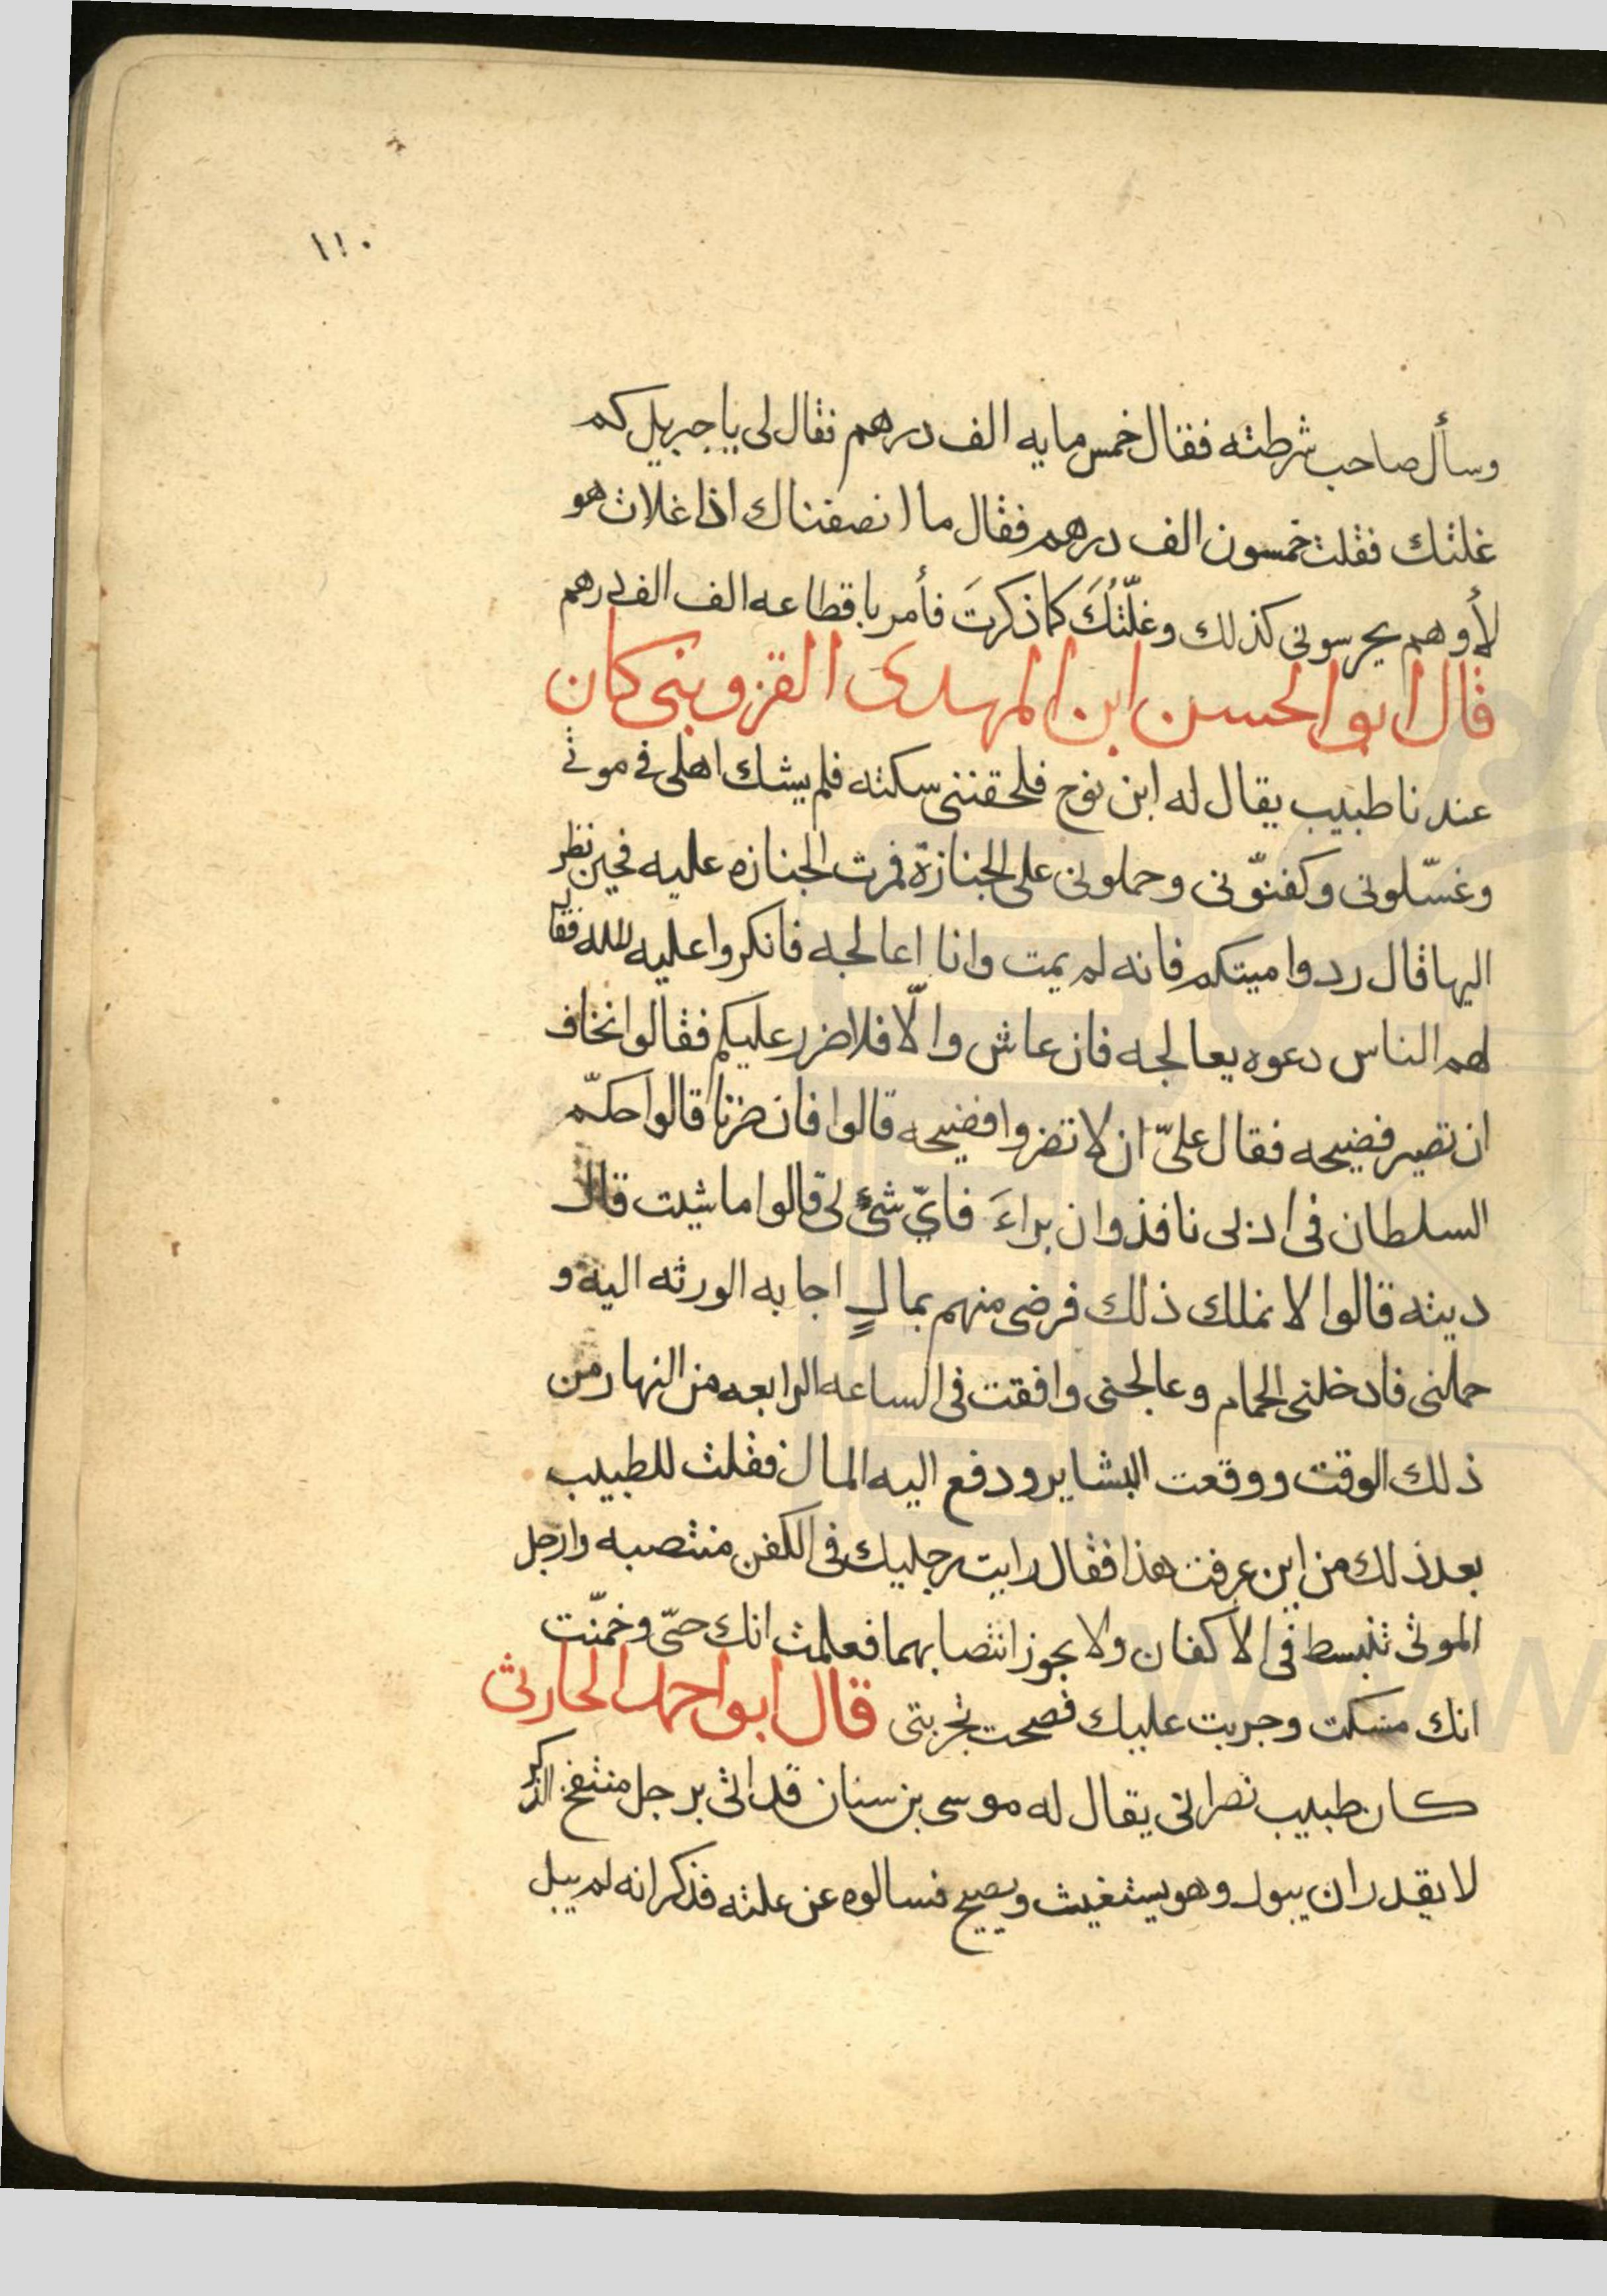 ١١٠
وسأل صاحب شرطته فقال خمس مايه الف درهم فقال لى يا جبريل كم
غلتك فقلت خمسون الف درهم فقال ما انصفناك اذا غلات هو
لأ وهم يحرسونى كذلك وغلّتُكَ كما ذكرتَ فأمر باقطاعه الف الف درهم
قال ابو الحسن ابن المهدى القزوينى كان
عندنا طبيب يقال له ابن نوح فلحقتنى سكته فلم يشك اهلى فى موتى
وغسّلونى وكفنّونى وحملونى على الجنازة فمرت الجنازه عليه فحين نظر
اليها قال ردوا ميتكم فانه لم يمت وانا اعالجه فانكروا عليه فقال
لهم الناس دعوه يعالجه فان عاش والّا فلا ضرر عليكم فقالوا نخاف
ان تصير فضيحه فقال علىّ ان لا تضروا فضيحه قالوا فان ضرنا قالوا حكم
السلطان فى نافذ وان براءَ فاىّ شئ لى قالوا ما شيت قال
ديته قالوا لا نملك ذلك فرضى منهم بمالٍ اجابه الورثه اليه و
حملنى فادخلنى الحمام وعالجنى وافقت فى الساعه الرابعه من النهار من
ذلك الوقت ووقعت البشاير ودفع اليه المال فقلت للطبيب
بعد ذلك من اين عرفت هذا فقال رايت رجليك فى الكفن منتصبه وارجل
الموتى تنبسط فى الاكفان ولا يجوز انتصابهما فعلمت انك حىّ وخمنّت
انك مسكت وجربت عليك فصحت تجربتى قال ابو احمد الحارثى
كان طبيب نصرانى يقال له موسى بن سنان قد اتى برجل منتفخ الذكر
لا يقدر ان يبول وهو يستغيث ويصيح فسالوه عن علته فذكر انه لم يبل